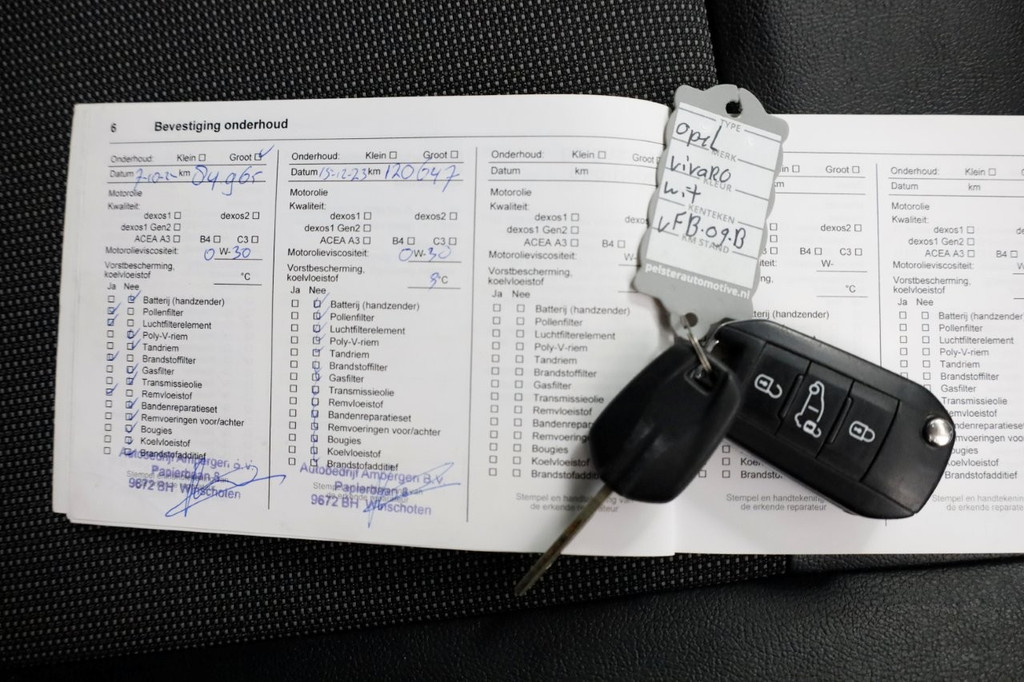 6 Bevestiging onderhoud
Onderhoud: Klein Groot
Datum km
Motorolie
Kwaliteit:
dexos1 dexos2
dexos1 Gen2
ACEA A3 B4 C3
Motorolieviscositeit: 0 W-30
Vorstbescherming, koelvloeistof °C
Ja Nee
Batterij (handzender)
Pollenfilter
Luchtfilterelement
Poly-V-riem
Tandriem
Brandstoffilter
Gasfilter
Transmissieolie
Remvloeistof
Bandenreparatieset
Remvoeringen voor/achter
Bougies
Koelvloeistof
Brandstofadditief
Autobedrijf Ampergen B.V.
Papierbaan 8
9672 BH Winschoten
Onderhoud: Klein Groot
Datum 15-12-23 km 120647
Motorolie
Kwaliteit:
dexos1 dexos2
dexos1 Gen2
ACEA A3 B4 C3
Motorolieviscositeit: 0 W-30
Vorstbescherming, koelvloeistof °C
Ja Nee
Batterij (handzender)
Pollenfilter
Luchtfilterelement
Poly-V-riem
Tandriem
Brandstoffilter
Gasfilter
Transmissieolie
Remvloeistof
Bandenreparatieset
Remvoeringen voor/achter
Bougies
Koelvloeistof
Brandstofadditief
Autobedrijf Ampergen B.V.
Papierbaan 8
9672 BH Winschoten
Onderhoud: Klein
Datum km
Motorolie
Kwaliteit:
dexos1
dexos1 Gen2
ACEA A3 B4
Motorolieviscositeit: W-
Vorstbescherming, koelvloeistof
Ja Nee
Batterij (handzender)
Pollenfilter
Luchtfilterelement
Poly-V-riem
Tandriem
Brandstoffilter
Gasfilter
Transmissieolie
Remvloeistof
Bandenreparatieset
Remvoeringen
Bougies
Koelvloeistof
Brandstofadditief
Stempel en handtekening van
de erkende reparateur
TYPE
opel
MERK
vivaRO
KLEUR
wit
KENTEKEN
VFB.09.B
KM STAND
pelsterautomotive.nl
Groot
km
dexos2
B4 C3
W-
°C
Stempel en handtekening
de erkende reparateur
Onderhoud: Klein
Datum km
Motorolie
Kwaliteit:
dexos1
dexos1 Gen2
ACEA A3 B4
Motorolieviscositeit: W-
Vorstbescherming, koelvloeistof
Ja Nee
Batterij (handzender)
Pollenfilter
Luchtfilterelement
Poly-V-riem
Tandriem
Brandstoffilter
Gasfilter
Transmissieolie
Remvloeistof
Bandenreparatieset
Remvoeringen voor
Bougies
Koelvloeistof
Brandstofadditief
Stempel en handtekening
de erkende reparateur